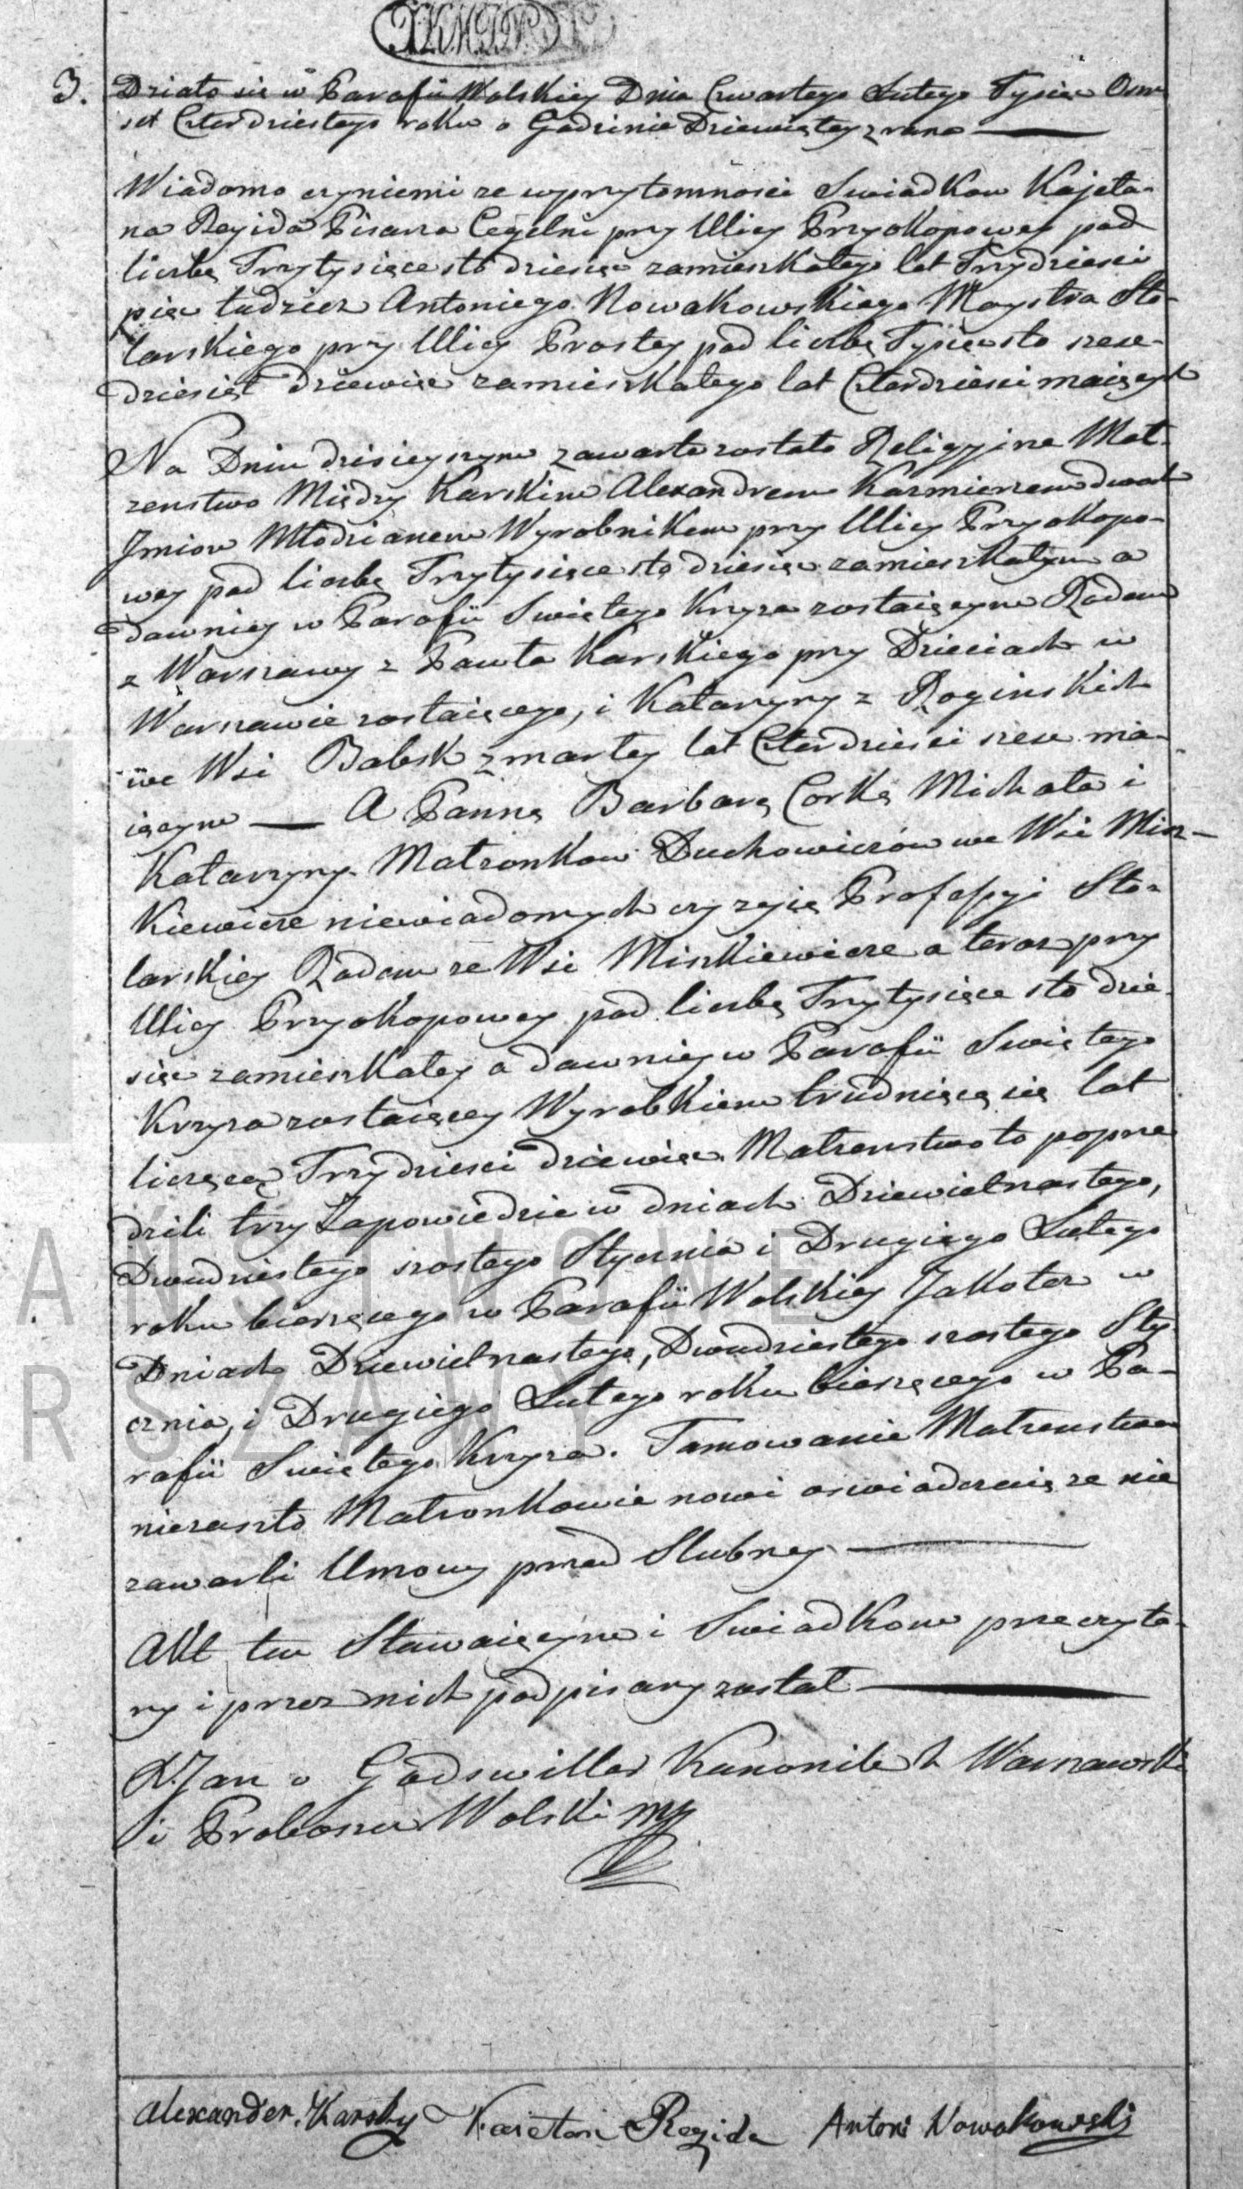 3. Działo się w Parafii Wolskiey Dnia Czwartego Lutego Tysiąc Osm
set Czterdziestego roku o Godzinie Dziewiątey z rana
Wiadomo czyniemi ze wprzytomności Swiadkow Kajeta-
na Rezida Pisarza Cegelni przy Ulicy Przyokopowey pod
liczbą Trzytysiące sto dziesięc zamieszkałego lat Trzydzieści
pięc tudziez Antoniego Nowakowskiego Maystra Sto-
larskiego przy Ulicy Prostey pod liczbą Tysiąc sto szesc-
dziesiąt dziewięc zamieszkałego lat Czterdzieści maiących
Na Dniu dzisieyszym zawarte zostało Religyine Mał-
zenstwo Między Karskim Alexandrem Kazmierzem dwoch
Jmion Młodzianem Wyrobnikem przy Ulicy Przyokopo-
wey pod liczbą Trzytysiące sto dziesięc zamieszkałym a
dawniey w Parafii Swiętego Krzyza zostaiącym Rodem
z Warszawy z Pawła Karskiego przy Dzieciach w
Warszawie zostaiącego, i Katarzyny z Roginskich
we Wsi Babsk zmarłey lat Czterdzieści szesc ma-
iącym — A Panną Barbarą Corką Michała i
Katarzyny Małzonkow Duchowiczów we Wsi Misz-
kiewicze niewiadomych czy zyią Professyi Sto-
larskiey Rodem ze Wsi Miszkiewicze a teraz przy
Ulicy Przyokopowey pod liczbą Trzytysiące sto dzie-
sięc zamieszkałey a dawniey w Parafii Swiętego
Krzyza zostaiącey Wyrobkiem trudniącą się lat
liczącą Trzydzieści dziewięc. Małzenstwo to poprze
dzili trzy Zapowiedzie w dniach Dziewietnastego,
Dwudziestego szostego Stycznia i Drugiego Lutego
roku bierzącego w Parafii Wolskiey Jakotez w
Dniach Dziewietnastego, Dwudziestego szostego Sty
cznia, i Drugiego Lutego roku bierzącego w Pa-
rafii Swiętego Krzyza. Tamowanie Małzenstwa
niezaszło Małzonkowie nowi oswiadczaią ze nie
zawarli Umowy przed Slubney
Akt ten Stawaiącym i Swiadkom przeczyta-
ny i przez nich podpisany został
X. Jan Kanonik Warszawski
i Proboszcz Wolski mp
Alexander Karsky Kaietan Rezida Antoni Nowakowski
AŃSTWOWE
RSZAWY